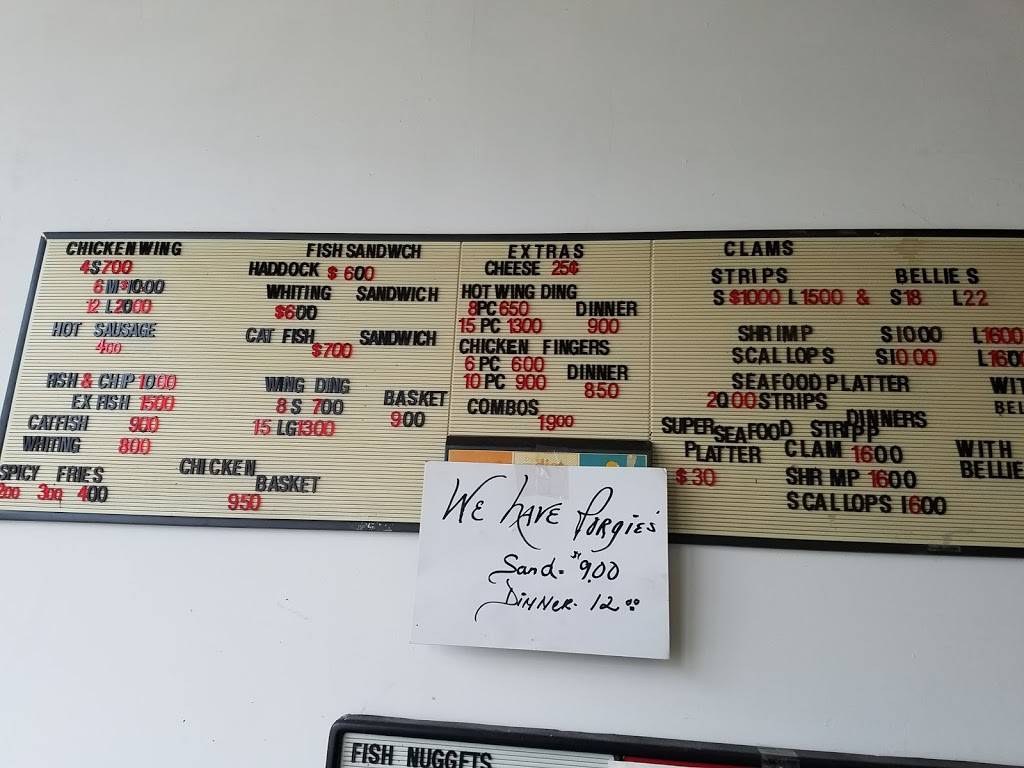 CHICKENWING
4S700
6 M$1000
12 L2000
HOT SAUSAGE
400
FISH & CHIP 1000
EX FISH 1500
CATFISH 900
WHITING 800
SPICY FRIES
200 300 400
FISH SANDWCH
HADDOCK $ 600
WHITING SANDWICH
$600
CAT FISH SANDWICH
$700
WING DING
8 S 700
15 LG1300
BASKET
900
CHICKEN
BASKET
950
EXTRAS
CHEESE 25¢
HOT WING DING
8PC 650
15 PC 1300
DINNER
900
CHICKEN FINGERS
6 PC 600
10 PC 900
DINNER
850
COMBOS
1900
CLAMS
STRIPS BELLIES
S $1000 L1500 & S18 L22
SHRIMP S1000 L1600
SCALLOPS S1000
SEAFOOD PLATTER
2000 STRIPS
SUPER SEAFOOD
PLATTER
$30
DINNERS
CLAM 1600
SHRMP 1600
SCALLOPS 1600
WITH
BELLIE
WE HAVE PORGIES
Sand. $9.00
DINNER. 12 00
FISH NUGGETS